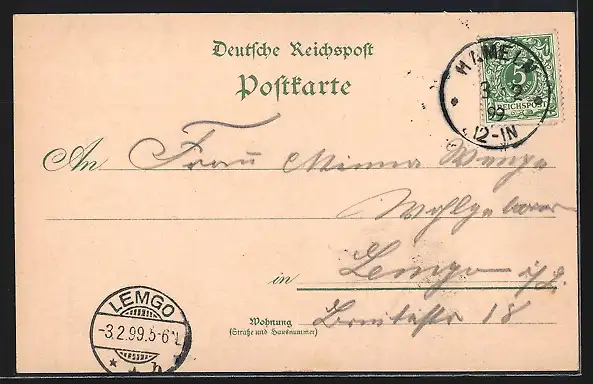 Deutsche Reichspost
Postkarte
HAMELN
3 2
99
12-1N
5
REICHSPOST
An Frau Minna Wenge
Wohlgeboren
in Lemgo i/L.
Wohnung
(Straße und Hausnummer)
Breitestr 18
LEMGO
-3.2.99.5-6N.